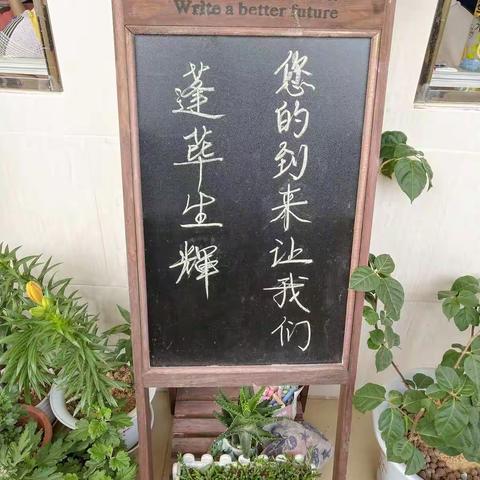 Write a better future
您的到来让我们
蓬荜生輝